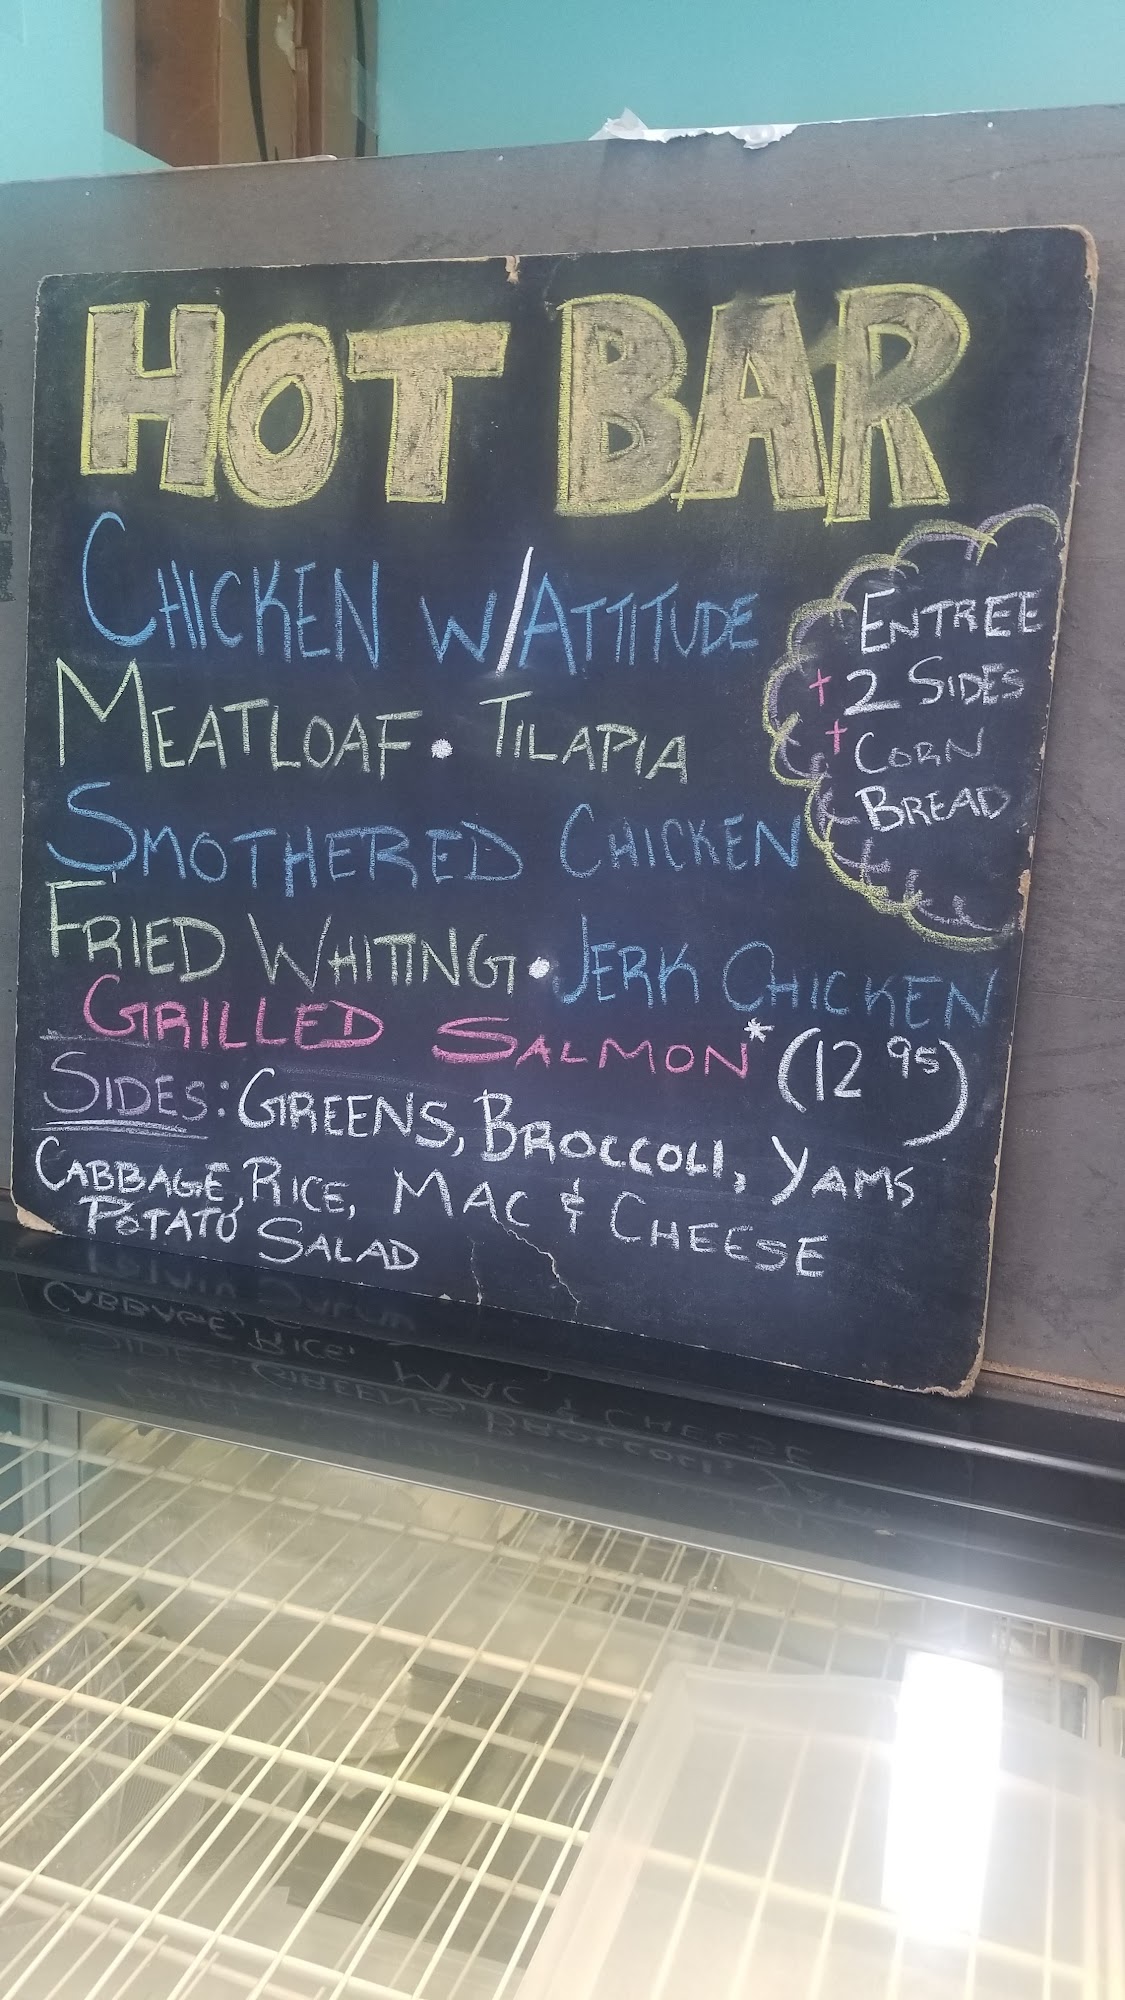 HOT BAR
CHICKEN W/ATTITUDE
MEATLOAF • TILAPIA
SMOTHERED CHICKEN
FRIED WHITING • JERK CHICKEN
GRILLED SALMON* (12 95)
ENTREE
+ 2 SIDES
+ CORN
BREAD
SIDES: GREENS, BROCCOLI, YAMS
CABBAGE, RICE, MAC & CHEESE
POTATO SALAD